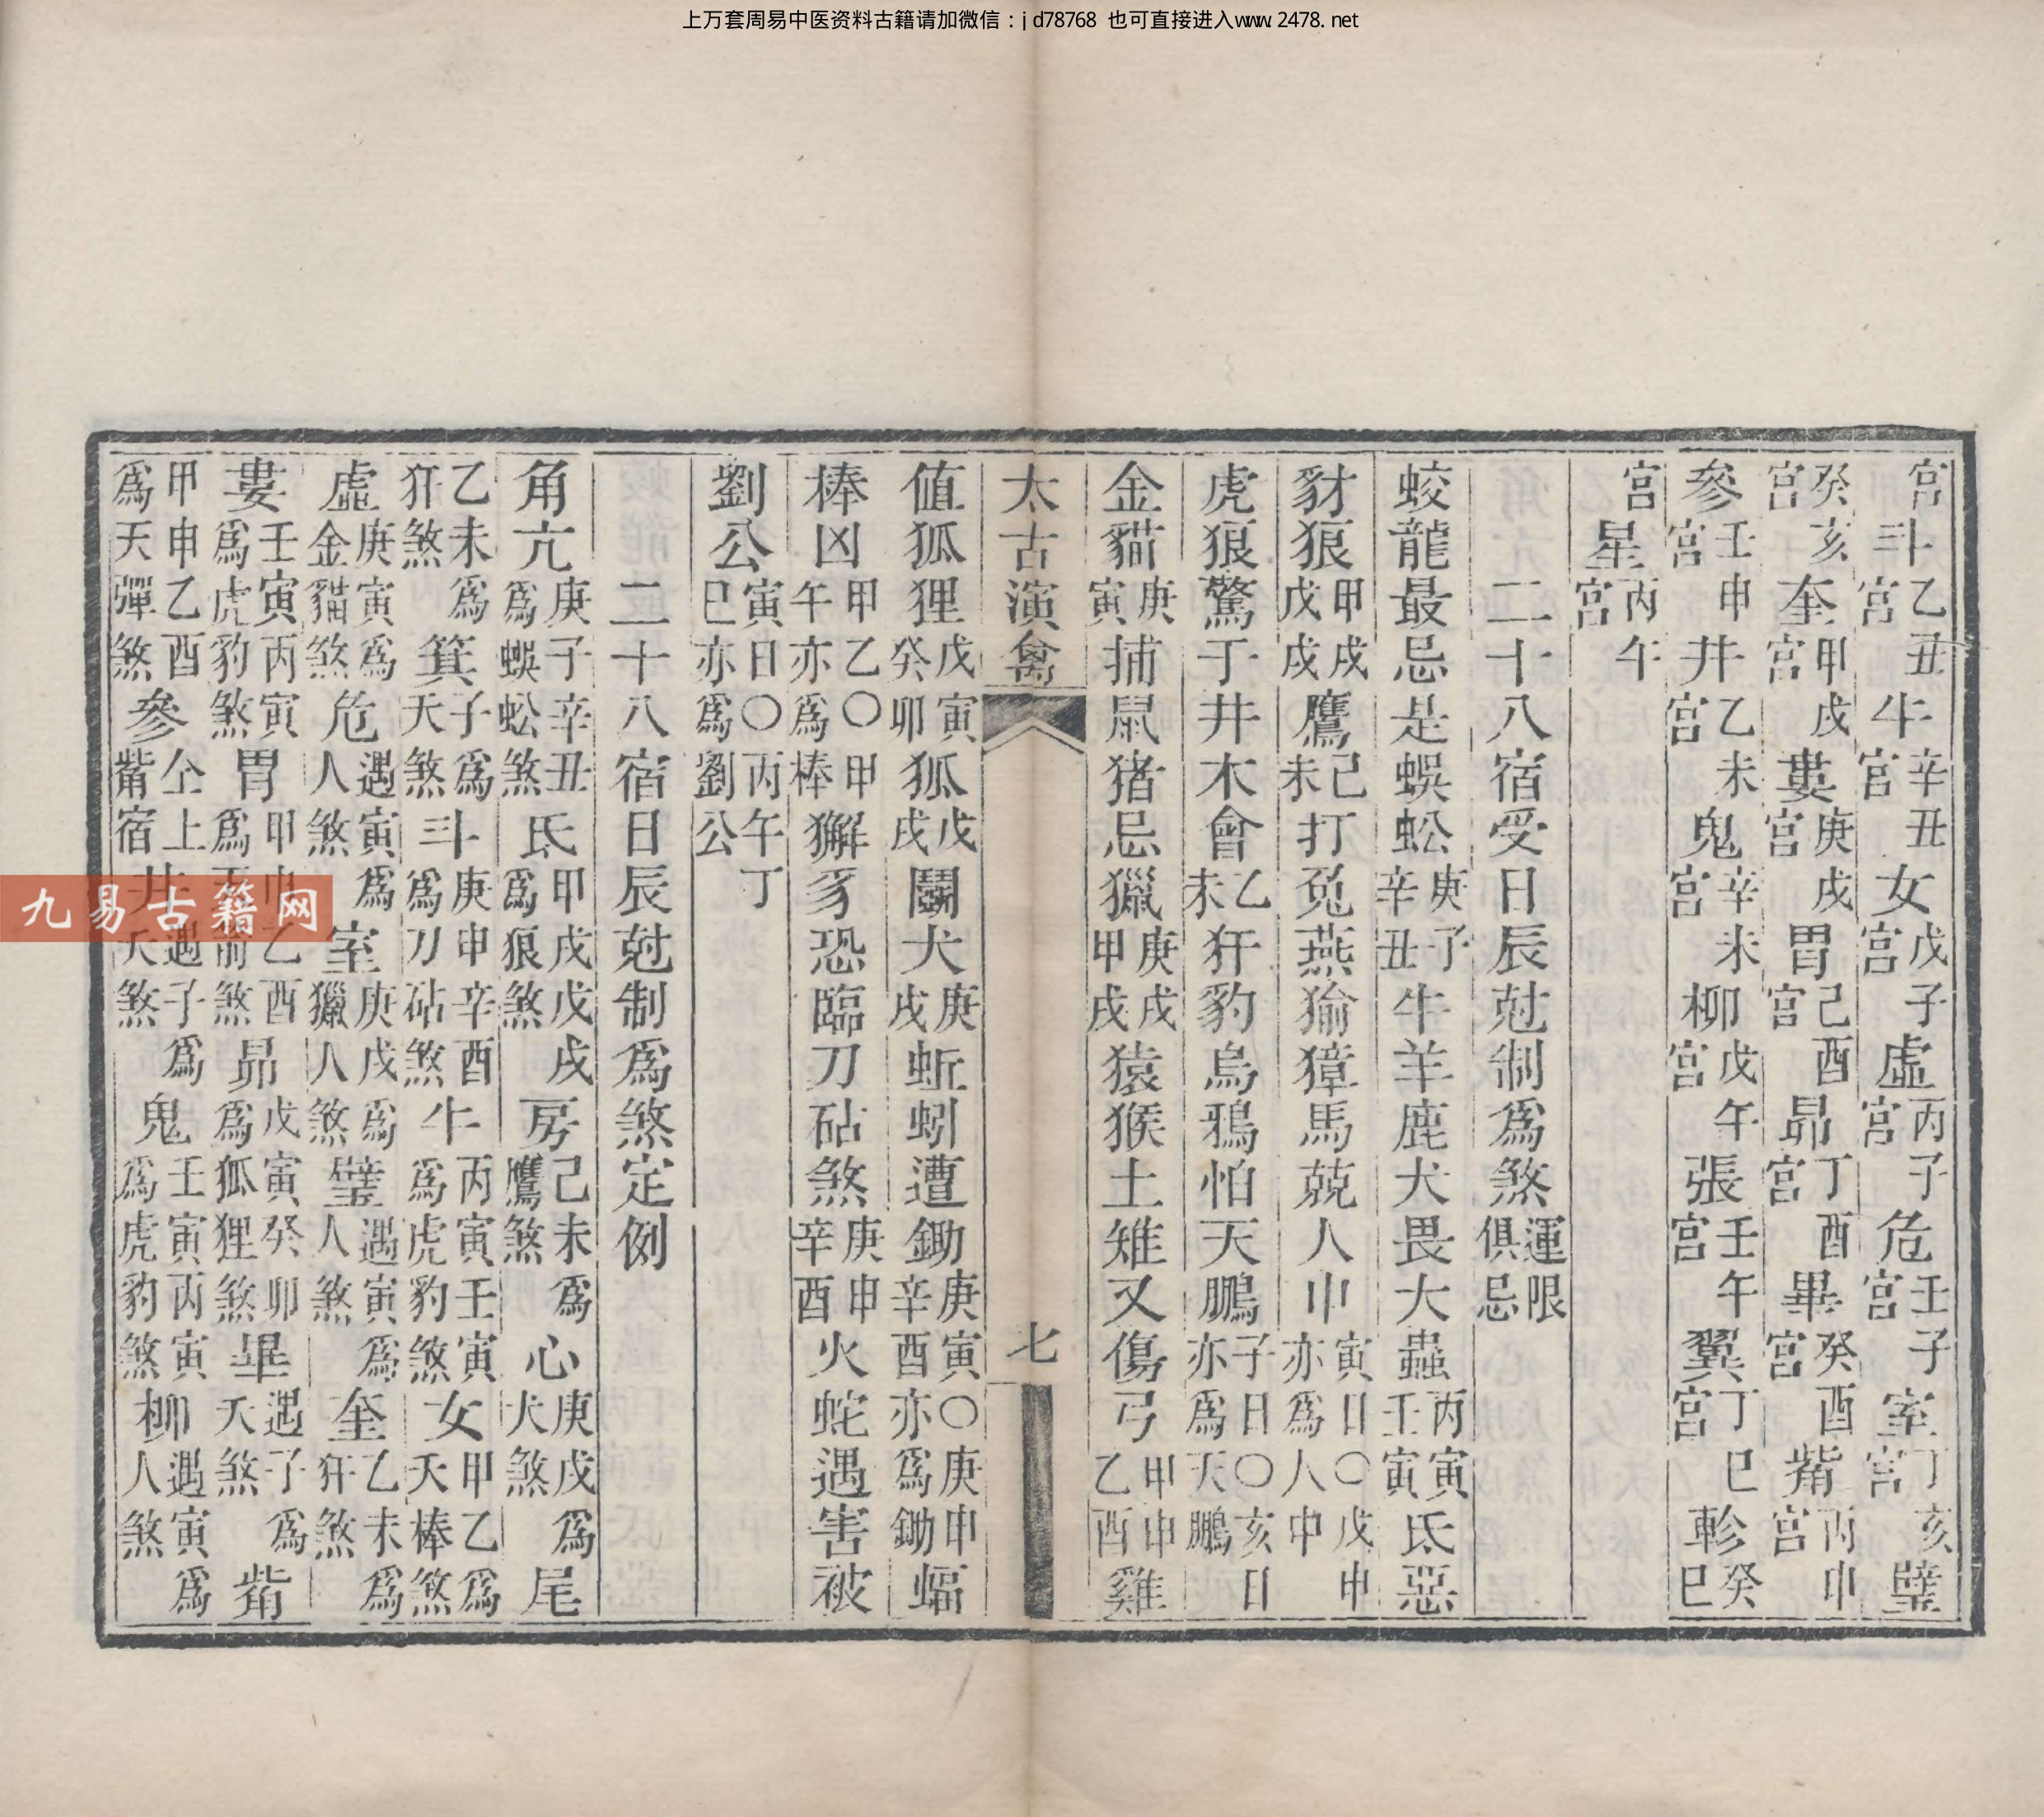 上万套周易中医资料古籍请加微信：jd78768 也可直接进入www.2478.net
宮斗乙丑宮牛辛丑宮女戊子宮虛丙子宮危壬子宮室丁亥宮壁
癸亥宮奎甲戌宮婁庚戌宮胃己酉宮昴丁酉宮畢癸酉宮觜丙申宮
參壬申宮井乙未宮鬼辛未宮柳戊午宮張壬午宮翼丁巳宮軫癸巳
宮星丙午宮
二十八宿受日辰尅制爲煞運限俱忌
蛟龍最忌是蜈蚣庚子辛丑牛羊鹿犬畏大蟲丙寅壬寅氐惡
豺狼甲戌戊戌鷹己未打兎燕㺄獐馬兢人中寅日亦爲人〇戊申中
虎狼驚于井木會乙未犴豹烏鴉怕天鵬子日亦爲天〇亥日鵬
金貓庚寅捕鼠猪忌獵庚戌甲戌猿猴土雉又傷弓甲申乙酉雞
太古演禽 七
值狐狸戊寅癸卯狐戊戌鬭犬庚戌蚯蚓遭鋤庚寅辛酉〇庚申亦爲鋤蝠
棒凶甲乙〇甲午亦爲棒獬豸恐臨刀砧煞庚申辛酉火蛇遇害被
劉公寅日〇丙午丁巳亦爲劉公
二十八宿日辰尅制爲煞定例
角亢庚子辛丑爲蜈蚣煞氐甲戌戊戌爲狼煞房己未爲鷹煞心庚戌爲犬煞尾
乙未爲犴煞箕子爲天煞斗庚申辛酉爲刀砧煞牛丙寅壬寅爲虎豹煞女甲乙爲天棒煞
虛庚寅爲金貓煞危遇寅爲人煞室庚戌爲獵人煞壁遇寅爲人煞奎乙未爲犴煞
婁壬寅丙寅爲虎豹煞胃甲申乙酉爲煞昴戊寅癸卯爲狐狸煞畢遇子爲天煞觜
甲申乙酉爲天彈煞參仝上觜宿井遇子爲天煞鬼壬寅丙寅爲虎豹煞柳遇寅爲人煞
九易古籍网